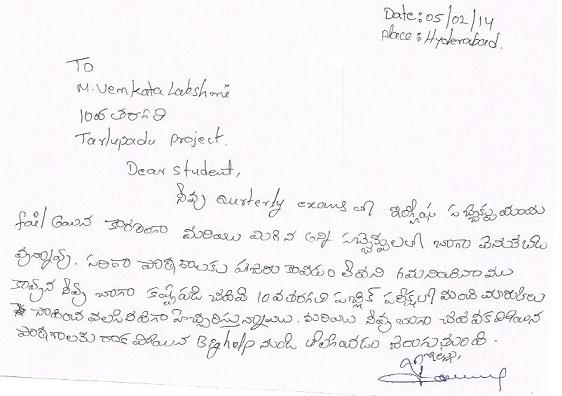 Date: 05/02/14
place: Hyderabad.
To
M. Venkata Lakshmi
10వ తరగతి
Tarlupadu project.
Dear student,
నీవు Qurterly exams లో ఇంగ్లీషు సబ్జెక్టు నందు
fail అయిన కారణంగా మరియు మిగిన అన్ని సబ్జెక్టులలో బాగా వెనుకబడి
వున్నావు. సరిగా పాఠశాలకు హాజరు కావడం లేదని గమనించినాము
కావున నీవు బాగా కష్టపడి చదివి 10వ తరగతి పబ్లిక్ పరీక్షలో మంచి మార్కులు
సాధించ వలసినదిగా హెచ్చరిస్తున్నాము. మరియు నీవు బాగా చదవక పోయిన
పాఠశాలకు రాక పోయిన Big help నుండి తొలగించడం జరుగుతుంది.
ఇట్లు,